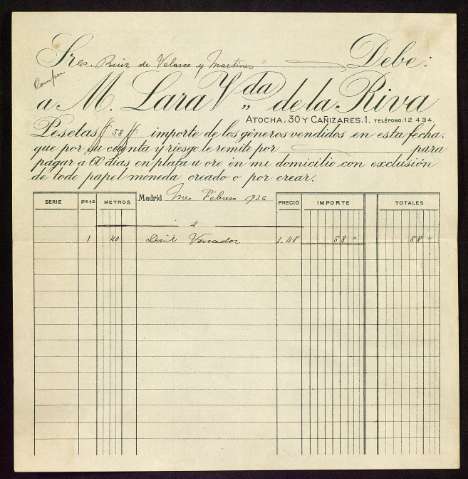 Sres. Ruiz de Velasco y Martinez Debe:
a M. Lara Vda de la Riva
ATOCHA. 30 Y CAÑIZARES. 1. TELÉFONO. 12434.
Pesetas # 58 # importe de los géneros vendidos en esta fecha,
que por su cuenta y riesgo le remite por para
pagar a 60 dias en plata u oro en mi domicilio con exclusión
de todo papel-moneda creado o por crear.
SERIE PZAS METROS Madrid Febrero 1926 PRECIO IMPORTE TOTALES
1 40 1.45 58 " 58 "